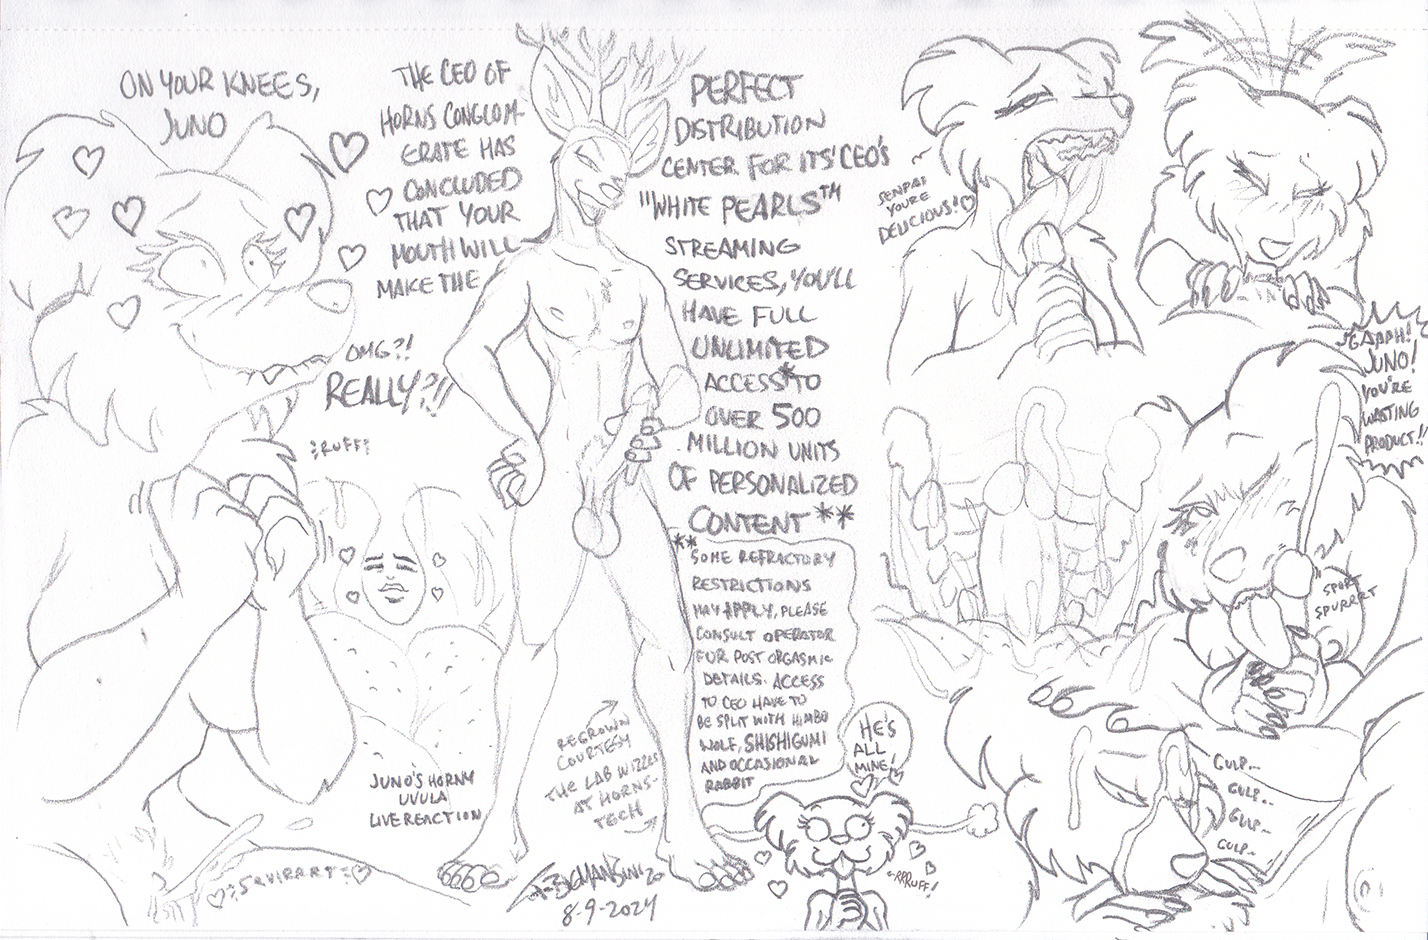 ON YOUR KNEES,
JUNO
THE CEO OF
HORNS CONGLOM-
ERATE HAS
CONCLUDED
THAT YOUR
MOUTH WILL
MAKE THE
PERFECT
DISTRIBUTION
CENTER FOR ITS' CEO'S
"WHITE PEARLS™
STREAMING
SERVICES, YOU'LL
HAVE FULL
UNLIMITED
ACCESS* TO
OVER 500
MILLION UNITS
OF PERSONALIZED
CONTENT**
OMG?!
REALLY?!!
:RUFF:
**
SOME REFRACTORY
RESTRICTIONS
MAY APPLY, PLEASE
CONSULT OPERATOR
FUR POST ORGASMIC
DETAILS. ACCESS
TO CEO HAVE TO
BE SPLIT WITH HIMBO
WOLF, SHISHIGUMI
AND OCCASIONAL
RABBIT
SENPAI
YOU'RE
DELICIOUS!
JGAAAH!
JUNO!
YOU'RE
WASTING
PRODUCT!!
SPORT
SPURRRT
GULP...
GULP..
GULP..
GULP..
HE'S
ALL
MINE!
RRRUFF!
REGROWN
COURTESY
THE LAB WIZZES
AT HORNS-
TECH
JUNO'S HORNY
UVULA
LIVE REACTION
:SQUIRRRT:
8-9-2024